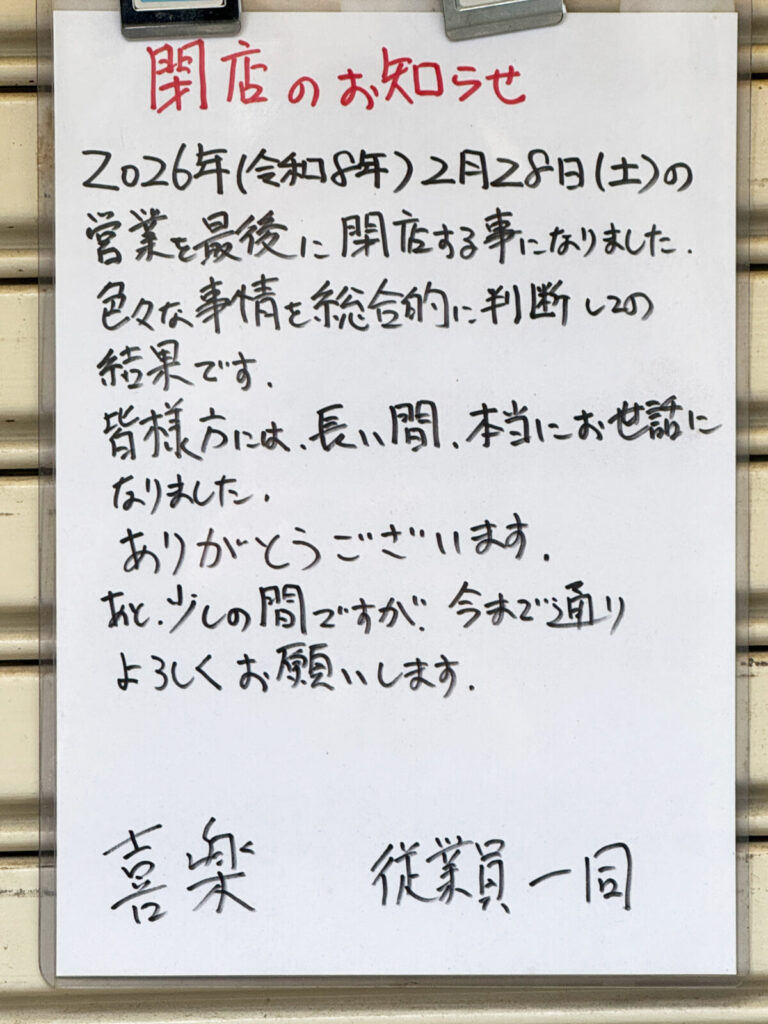 閉店のお知らせ
2026年(令和8年)2月28日(土)の
営業を最後に閉店する事になりました.
色々な事情を総合的に判断しての
結果です.
皆様方には、長い間、本当にお世話に
なりました.
ありがとうございます.
あと、少しの間ですが、今まで通り
よろしくお願いします.
喜楽 従業員一同